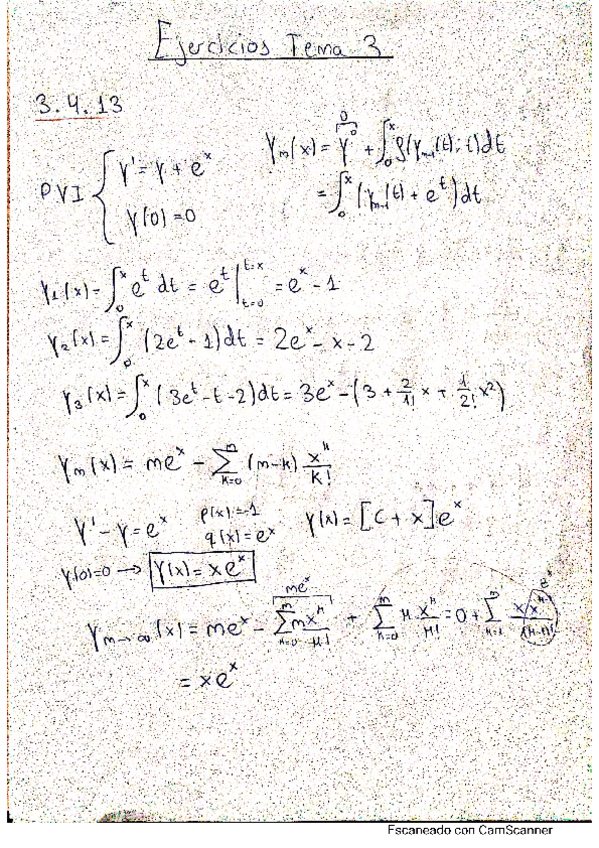 Ejercicios Tema 3
3.4.13
PVI { y' = y + e^x
y(0) = 0
y_m(x) = y^0 + ∫_0^x f(y_{m-1}(t); t)dt
0
= ∫_0^x (y_{m-1}(t) + e^t)dt
y_1(x) = ∫_0^x e^t dt = e^t |_{t=0}^{t=x} = e^x - 1
y_2(x) = ∫_0^x (2e^t - 1)dt = 2e^x - x - 2
y_3(x) = ∫_0^x (3e^t - t - 2)dt = 3e^x - (3 + 2/1! x + 1/2! x^2)
y_m(x) = me^x - Σ_{k=0}^m (m-k) x^k/k!
y' - y = e^x p(x) = -1 y(x) = [C + x]e^x
q(x) = e^x
y(0)=0 → y(x) = xe^x
y_{m→∞}(x) = me^x - Σ_{k=0}^m m x^k/k! + Σ_{k=0}^m k x^k/k! = 0 + Σ_{k=1}^m x x^{k-1}/(k-1)!
me^x e^x
= xe^x
Escaneado con CamScanner